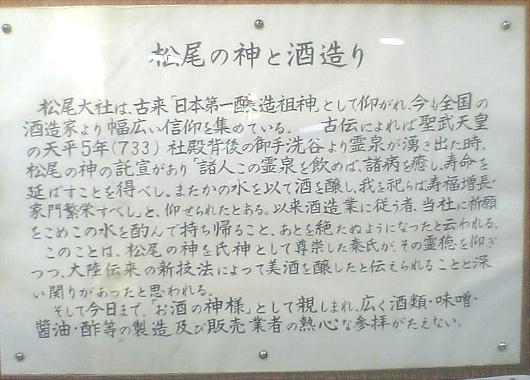 松尾の神と酒造り
松尾大社は、古来「日本第一醸造祖神」として仰がれ、今も全国の
酒造家より幅広い信仰を集めている。 古伝によれば聖武天皇
の天平5年(733) 社殿背後の御手洗谷より霊泉が湧き出た時、
松尾の神の託宣があり「諸人この霊泉を飲めば、諸病を癒し、寿命を
延ばすことを得べし、またかの水を以て酒を醸し、我を祀らば寿福増長・
家門繁栄すべし」と、仰せられたとある。以来酒造業に従う者、当社に祈願
をこめこの水を酌んで持ち帰ること、あとを絶たぬようになったと云われる。
このことは、松尾の神を氏神として尊崇した秦氏が、その霊徳を仰ぎ
つつ、大陸伝来の新技法によって美酒を醸したと伝えられることと深
い関りがあったと思われる。
そして今日まで、「お酒の神様」として親しまれ、広く酒類・味噌・
醤油・酢等の製造及び販売業者の熱心な参拝がたえない。